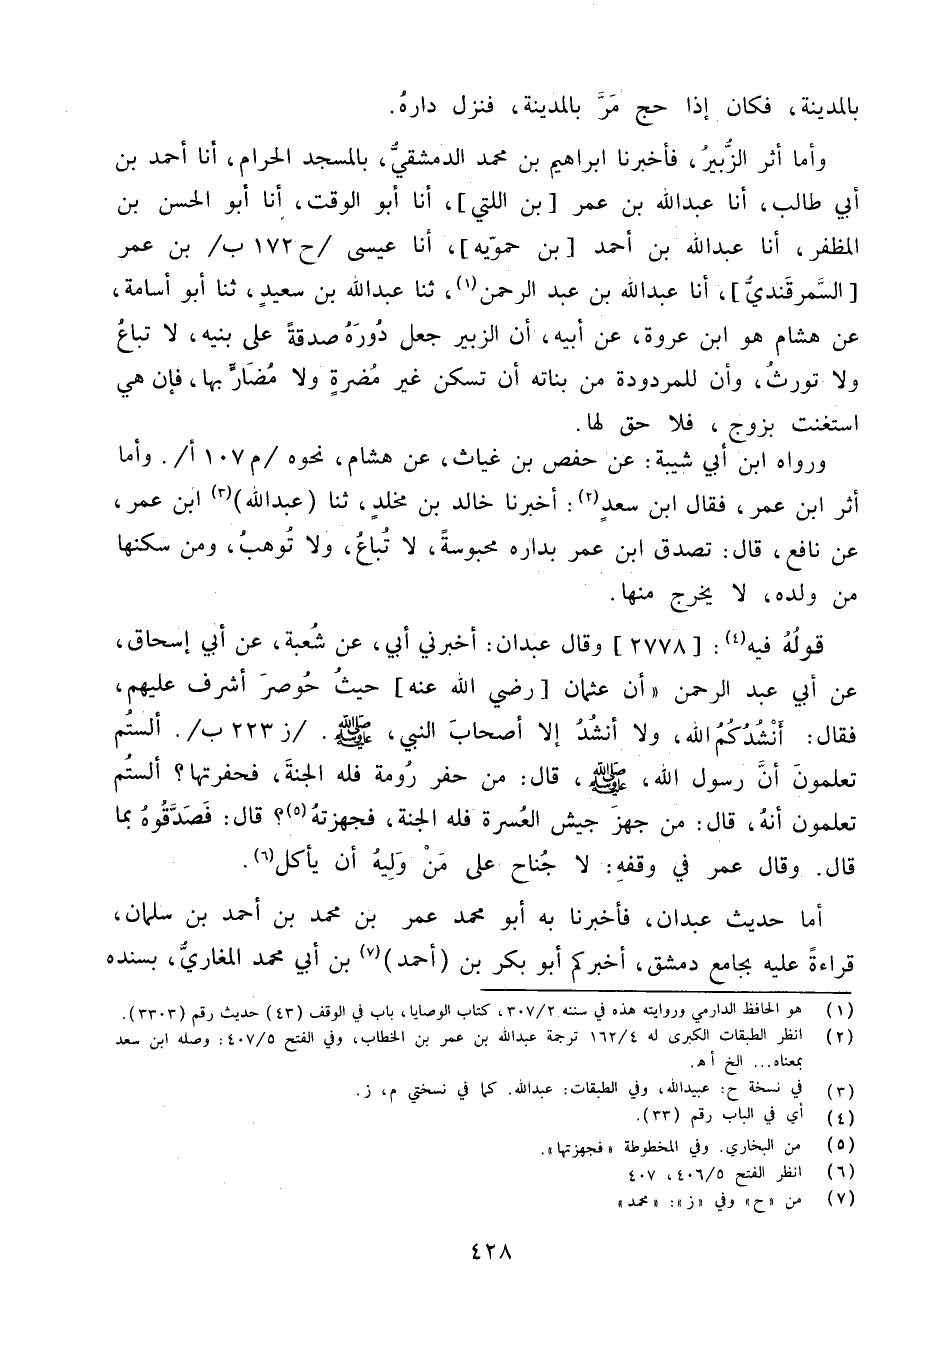 بالمدينة، فكان إذا حج مَرَّ بالمدينة، فنزل دارهُ.
وأما أثر الزُّبيرُ، فأخبرنا ابراهيم بن محمد الدمشقيُّ، بالمسجد الحرام، أنا أحمد بن
أبي طالب، أنا عبدالله بن عمر [بن اللتي]، أنا أبو الوقت، أنا أبو الحسن بن
المظفر، أنا عبدالله بن أحمد [بن حمويه]، أنا عيسى /ح ١٧٢ ب/ بن عمر
[السَّمرقَنديُّ]، أنا عبدالله بن عبد الرحمن(١)، ثنا عبدالله بن سعيدٍ، ثنا أبو أسامة،
عن هشام هو ابن عروة، عن أبيه، أن الزبير جعل دُورَهُ صدقةً على بنيه، لا تباعُ
ولا تورثُ، وأن للمردودة من بناته أن تسكن غير مُضرةٍ ولا مُضَارٍّ بها، فإن هي
استغنت بزوج، فلا حق لها.
ورواه ابن أبي شيبة: عن حفص بن غياث، عن هشام، نحوه /م ١٠٧ أ/. وأما
أثر ابن عمر، فقال ابن سعدٍ(٢): أخبرنا خالد بن مخلدٍ، ثنا (عبدالله)(٣) ابن عمر،
عن نافع، قال: تصدق ابن عمر بداره محبوسةً، لا تُباعُ، ولا تُوهبُ، ومن سكنها
من ولده، لا يخرج منها.
قولُهُ فيه(٤): [٢٧٧٨] وقال عبدان: أخبرني أبي، عن شُعبة، عن أبي إسحاق،
عن أبي عبد الرحمن «أن عثمان [رضي الله عنه] حيثُ حُوصرَ أشرف عليهم،
فقال: أَنْشُدُكُمُ الله، ولا أنشُدُ إلا أصحابَ النبي، ﷺ. /ز ٢٢٣ ب/. ألستُم
تعلمونَ أنَّ رسول الله، ﷺ، قال: من حفر رُومة فله الجنةَ، فحفرتها؟ ألستُم
تعلمون أنهُ، قال: من جهزَ جيش العُسرة فله الجنة، فجهزتهُ(٥)؟ قال: فَصَدَّقُوهُ بما
قال. وقال عمر في وقفهِ: لا جُناح على مَنْ وَلِيهُ أن يأكل(٦).
أما حديث عبدان، فأخبرنا به أبو محمد عمر بن محمد بن أحمد بن سلمان،
قراءةً عليه بجامع دمشق، أخبركم أبو بكر بن (أحمد)(٧) بن أبي محمد المغاريُّ، بسنده
(١) هو الحافظ الدارمي وروايته هذه في سننه ٣٠٧/٢، كتاب الوصايا، باب في الوقف (٤٣) حديث رقم (٣٣٠٣).
(٢) انظر الطبقات الكبرى له ١٦٢/٤ ترجمة عبدالله بن عمر بن الخطاب، وفي الفتح ٤٠٧/٥: وصله ابن سعد
بمعناه... الخ أ هـ.
(٣) في نسخة ح: عبيدالله، وفي الطبقات: عبدالله. كما في نسختي م، ز.
(٤) أي في الباب رقم (٣٣).
(٥) من البخاري. وفي المخطوطة «فجهزتها».
(٦) انظر الفتح ٤٠٦/٥، ٤٠٧
(٧) من «ح» وفي «ز»: «محمد»
٤٢٨